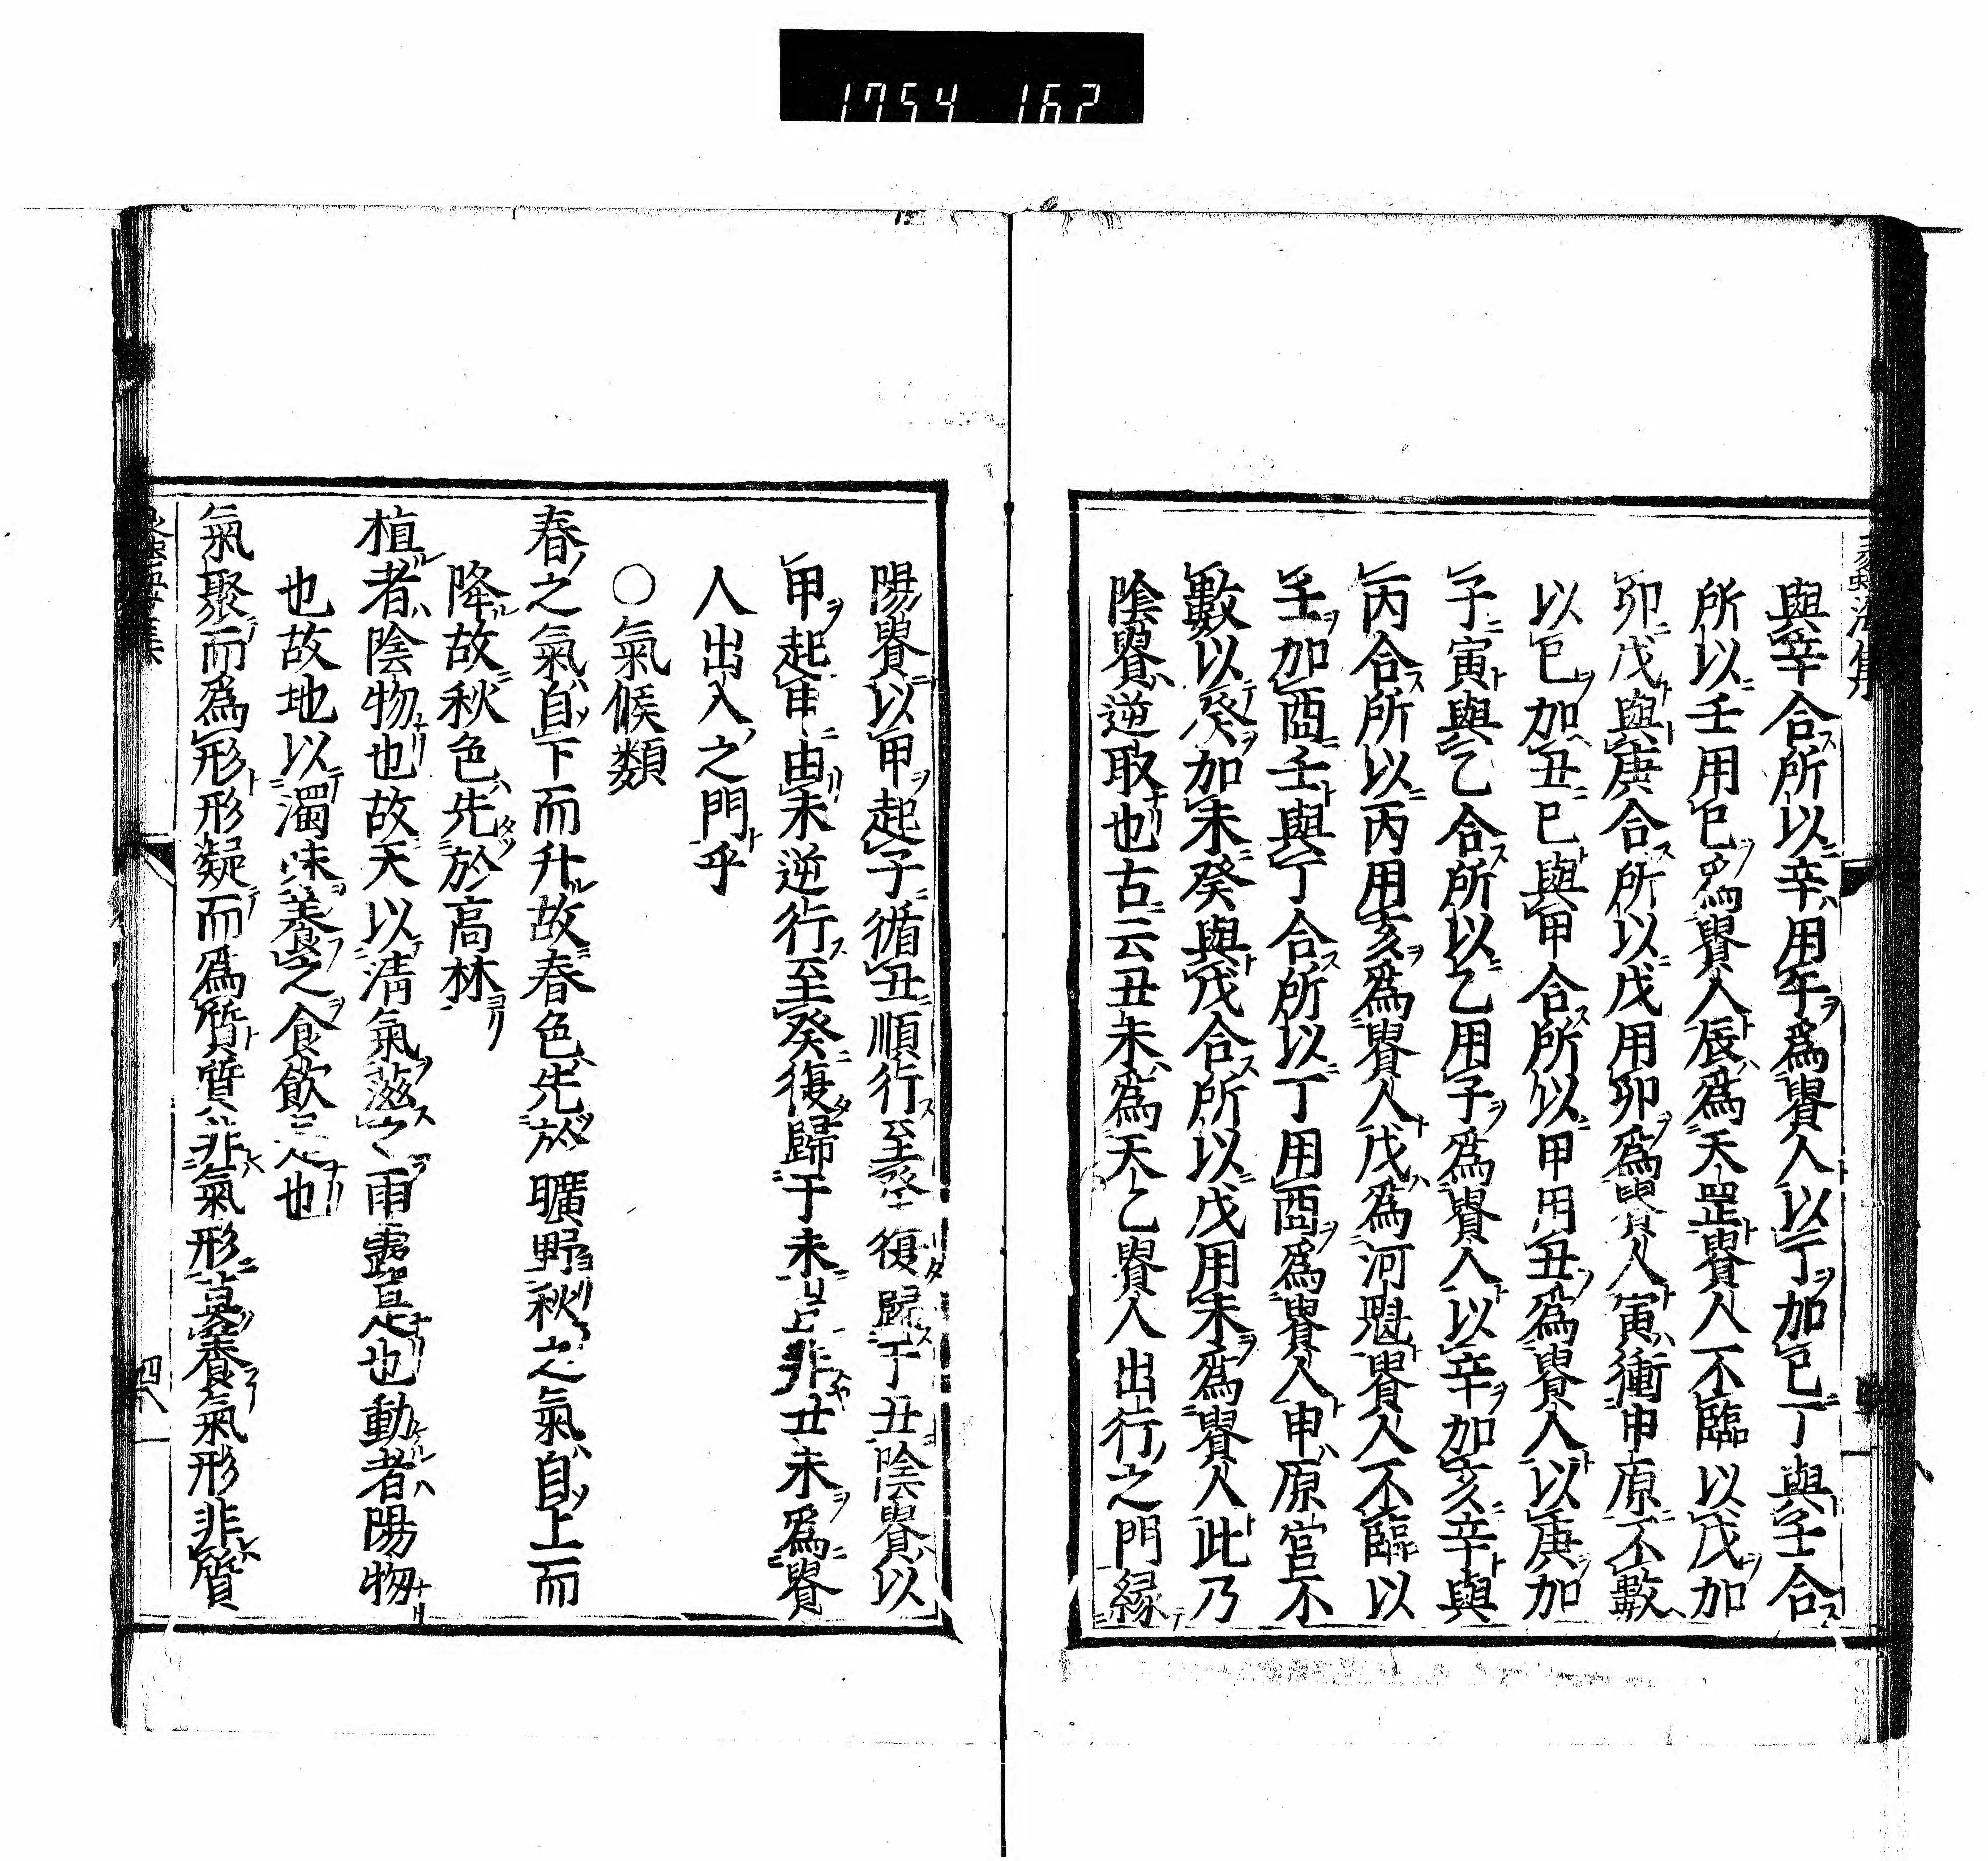 1754 162
與辛合所以辛用午爲貴人以丁加巳丁與壬合
所以壬用巳爲貴人辰爲天罡貴人不臨以戊加
卯戊與庚合所以戊用卯爲貴人寅衝申原不數
以巳加丑巳與甲合所以甲用丑爲貴人以庚加
子寅與乙合所以乙用子爲貴人以辛加亥辛與
丙合所以丙用亥爲貴人戌爲河魁貴人不臨以
壬加酉壬與丁合所以丁用酉爲貴人申原官不
數以癸加未癸與戊合所以戊用未爲貴人此乃
陰貴逆取也古云丑未爲天乙貴人出行之門緣
陽貴以甲起子循丑順行至癸復歸于丑陰貴以
甲起申由未逆行至癸復歸于未豈非丑未爲貴
人出入之門乎
○氣候類
春之氣自下而升故春色先於曠野秋之氣自上而
降故秋色先於高林
植者陰物也故天以淸氣滋之雨露是也動者陽物
也故地以濁味養之食飮是也
氣聚而爲形形凝而爲質質非氣形莫養氣形非質
四八